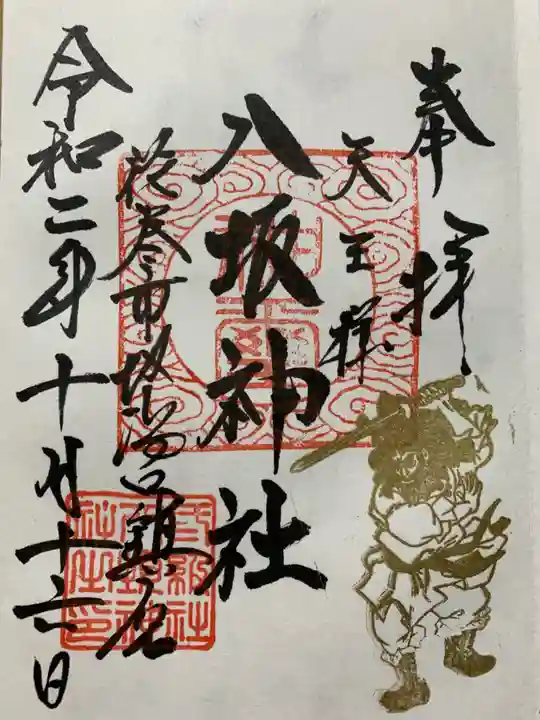 奉拝
天王様
八坂神社
花巻市 鎮座
令和二年十月十六日